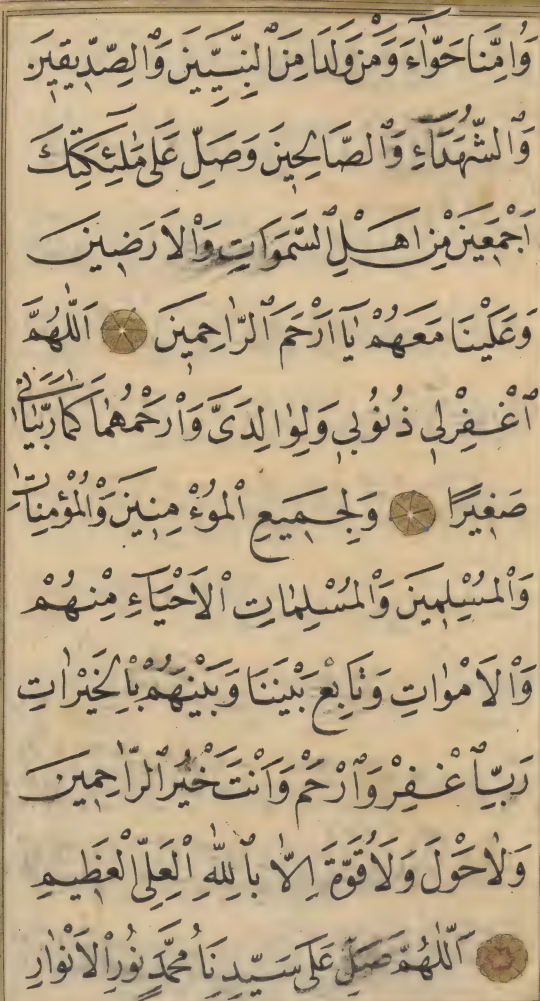 وَاُمِّنَا حَوَّاءَ وَمَنْ وَلَدَا مِنَ النَّبِيِّينَ وَالصِّدِّيقِينَ
وَالشُّهَدَاءِ وَالصَّالِحِينَ وَصَلِّ عَلَى مَلٰئِكَتِكَ
اَجْمَعِينَ مِنْ اَهْلِ السَّمَوَاتِ وَالْاَرَضِينَ
وَعَلَيْنَا مَعَهُمْ يَآ اَرْحَمَ الرَّاحِمِينَ اَللّٰهُمَّ
اغْفِرْلِي ذُنُوبِي وَلِوَالِدَيَّ وَارْحَمْهُمَا كَمَا رَبَّيَانِي
صَغِيرًا وَلِجَمِيعِ الْمُؤْمِنِينَ وَالْمُؤْمِنَاتِ
وَالْمُسْلِمِينَ وَالْمُسْلِمَاتِ الْاَحْيَآءِ مِنْهُمْ
وَالْاَمْوَاتِ وَتَابِعْ بَيْنَنَا وَبَيْنَهُمْ بِالْخَيْرَاتِ
رَبِّ اغْفِرْ وَارْحَمْ وَاَنْتَ خَيْرُ الرَّاحِمِينَ
وَلَا حَوْلَ وَلَا قُوَّةَ اِلَّا بِاللّٰهِ الْعَلِيِّ الْعَظِيمِ
اَللّٰهُمَّ صَلِّ عَلَى سَيِّدِنَا مُحَمَّدٍ نُورِ الْاَنْوَارِ